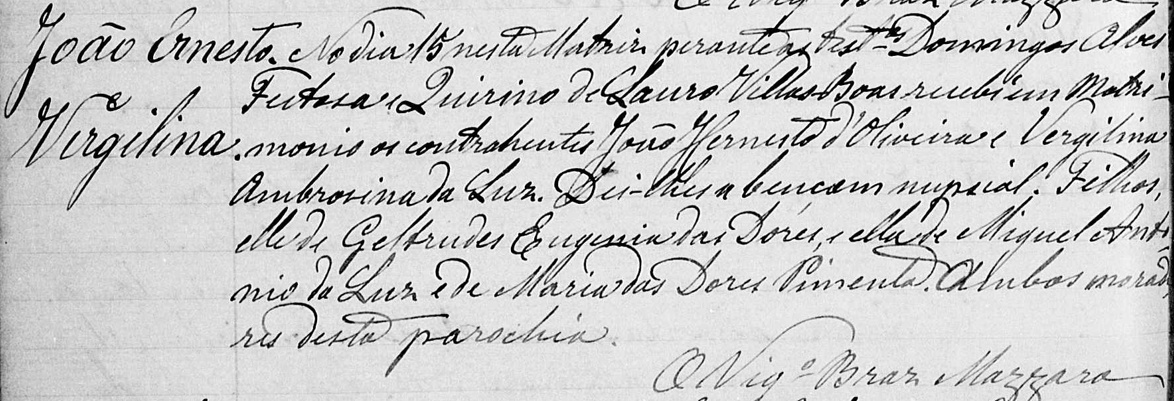 João Ernesto. No dia 15 nesta Matriz perante as testas Domingos Alves
Feitosa e Quirino de Lauro Villas Boas recebi em Matri-
Vergilina. monio os contrahentes João Hernesto d'Oliveira e Vergilina
Ambrosina da Luz. Dei-lhes a bençam nupsial. Filhos,
elle de Geltrudes Eugenia das Dôres, e ella de Miguel Anto
nio da Luz e de Maria das Dores Pimenta. Ambos morado
res desta parochia.
O Vigº Braz Mazzara